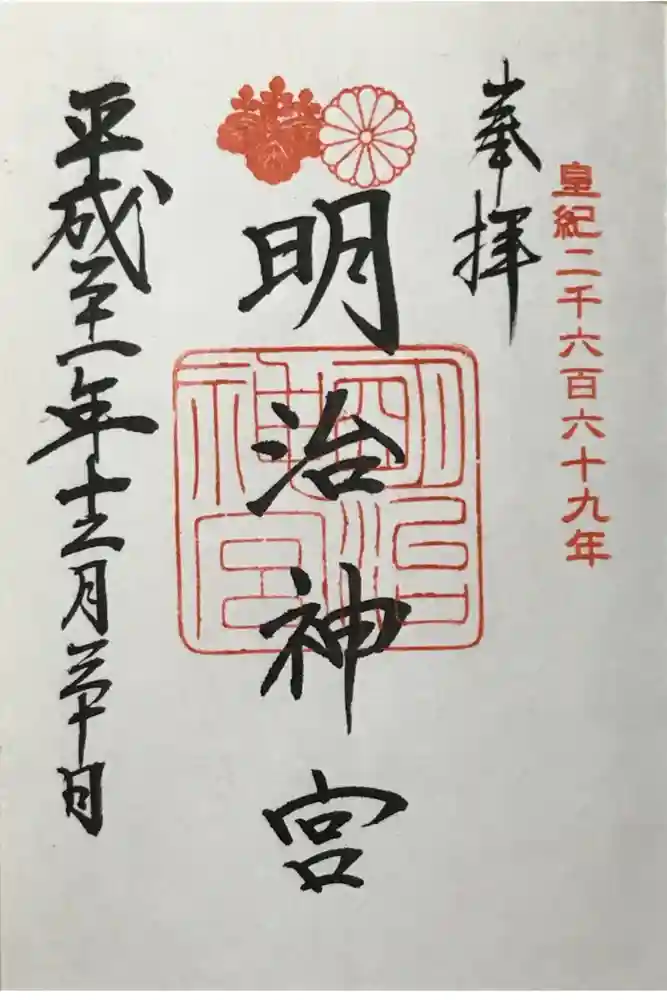 皇紀二千六百六十九年
奉拝
明治神宮
明治神宮
平成二十一年十二月三十日